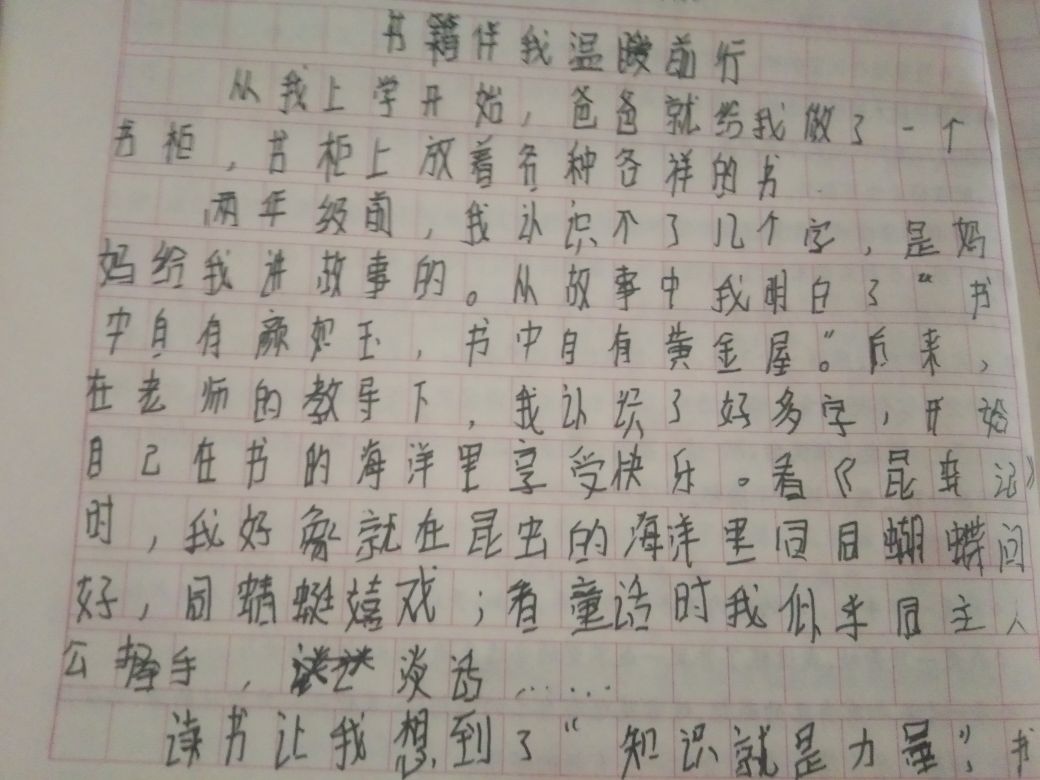 书籍伴我温暖前行
从我上学开始，爸爸就给我做了一个
书柜，书柜上放着各种各样的书
两年级前，我认识不了几个字，是妈
妈给我讲故事的。从故事中我明白了“书
中自有颜如玉，书中自有黄金屋。”后来，
在老师的教导下，我认识了好多字，开始
自己在书的海洋里享受快乐。看《昆虫记》
时，我好象就在昆虫的海洋里同同蝴蝶问
好，同蜻蜓嬉戏；看童话时我似乎同主人
公握手，谈话……
读书让我想到了“知识就是力量”，书